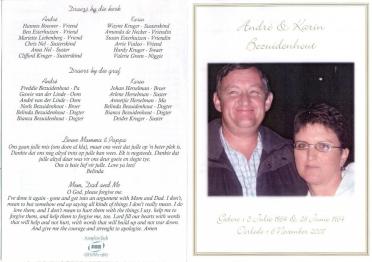 Draers by die kerk
André
Hannes Bouwer - Vriend
Ben Esterhuizen - Vriend
Mariette Liebenberg - Vriend
Chris Nel - Susterskind
Anna Nel - Suster
Clifford Kruger - Susterskind
Karin
Wayne Kruger - Susterskind
Amanda de Necker - Vriendin
Susan Esterhuizen - Vriendin
Hardy Kruger - Swaer
Valerie Green - Niggie
Draers by die graf
André
Freddie Bezuidenhout - Pa
Gawie van der Linde - Oom
André van der Linde - Oom
Neels Bezuidenhout - Broer
Belinda Bezuidenhout - Dogter
Bianca Bezuidenhout - Dogter
Karin
Johan Herselman - Broer
Arlene Herselman - Sister
Annetjie Herselman - Ma
Belinda Bezuidenhout - Dogter
Bianca Bezuidenhout - Dogter
Desley Kruger - Suster
Liewe Mamma & Pappa
Ons gaan julle mis (ons doen al klaar), maar ons weet dat julle op 'n beter plek is.
Dankie dat ons nog altyd trots op julle kan wees. Elk is vergesteld. Dankie dat
julle altyd daar was vir ons deur goeie en slegte tye.
Ons is baie lief vir julle. Love ya lots!
Belinda
Mom, Dad and Me
O God, please forgive me.
I've done it again - gone and got into an argument with Mom and Dad. I don't
mean to but somehow end up saying all kinds of things I don't really mean. I do
love them, and I don't mean to hurt them with the things I say. help me to
forgive them, and help them to forgive me, too. Lord fill our hearts with words
that will help and not hurt, with words that will build up and not tear down.
And give me the courage and strength to apologize. Amen
André & Karin
Bezuidenhout